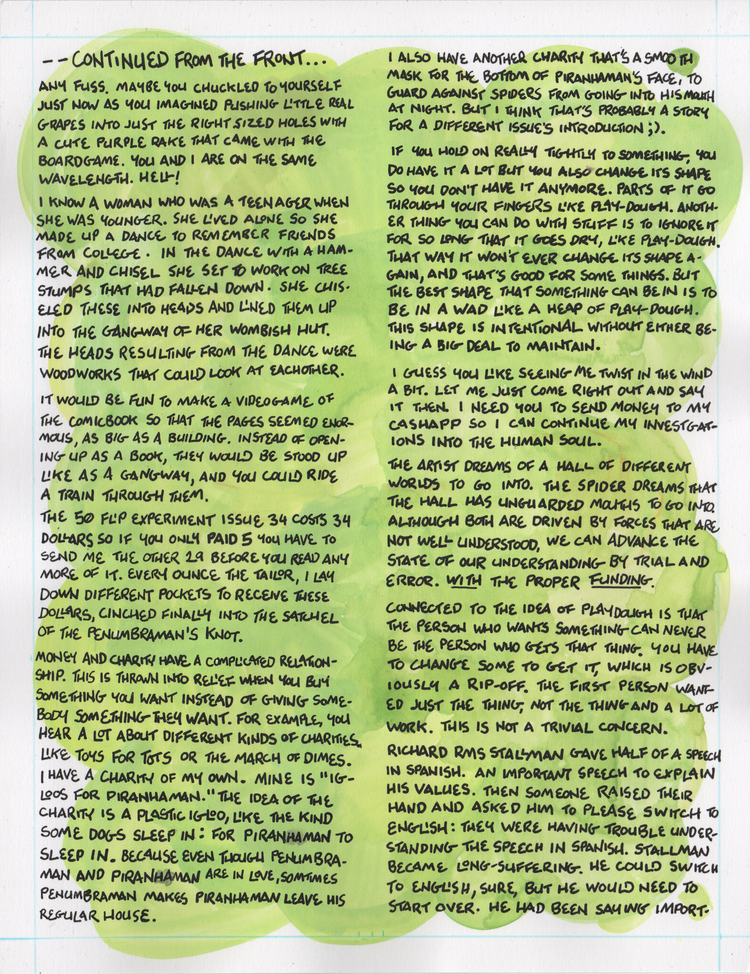 --CONTINUED FROM THE FRONT...
ANY FUSS. MAYBE YOU CHUCKLED TO YOURSELF
JUST NOW AS YOU IMAGINED PUSHING LITTLE REAL
GRAPES INTO JUST THE RIGHT SIZED HOLES WITH
A CUTE PURPLE RAKE THAT CAME WITH THE
BOARDGAME. YOU AND I ARE ON THE SAME
WAVELENGTH. HELL!
I KNOW A WOMAN WHO WAS A TEENAGER WHEN
SHE WAS YOUNGER. SHE LIVED ALONE SO SHE
MADE UP A DANCE TO REMEMBER FRIENDS
FROM COLLEGE. IN THE DANCE WITH A HAM-
MER AND CHISEL SHE SET TO WORK ON TREE
STUMPS THAT HAD FALLEN DOWN. SHE CHIS-
ELED THESE INTO HEADS AND LINED THEM UP
INTO THE GANGWAY OF HER WOMBISH HUT.
THE HEADS RESULTING FROM THE DANCE WERE
WOODWORKS THAT COULD LOOK AT EACHOTHER.
IT WOULD BE FUN TO MAKE A VIDEOGAME OF
THE COMICBOOK SO THAT THE PAGES SEEMED ENOR-
MOUS, AS BIG AS A BUILDING. INSTEAD OF OPEN-
ING UP AS A BOOK, THEY WOULD BE STOOD UP
LIKE AS A GANGWAY, AND YOU COULD RIDE
A TRAIN THROUGH THEM.
THE 50 FLIP EXPERIMENT ISSUE 34 COSTS 34
DOLLARS SO IF YOU ONLY PAID 5 YOU HAVE TO
SEND ME THE OTHER 29 BEFORE YOU READ ANY
MORE OF IT. EVERY OUNCE THE TAILOR, I LAY
DOWN DIFFERENT POCKETS TO RECEIVE THESE
DOLLARS, CINCHED FINALLY INTO THE SATCHEL
OF THE PENUMBRAMAN'S KNOT.
MONEY AND CHARITY HAVE A COMPLICATED RELATION-
SHIP. THIS IS THROWN INTO RELIEF WHEN YOU BUY
SOMETHING YOU WANT INSTEAD OF GIVING SOME-
BODY SOMETHING THEY WANT. FOR EXAMPLE, YOU
HEAR A LOT ABOUT DIFFERENT KINDS OF CHARITIES,
LIKE TOYS FOR TOTS OR THE MARCH OF DIMES.
I HAVE A CHARITY OF MY OWN. MINE IS "IG-
LOOS FOR PIRANHAMAN." THE IDEA OF THE
CHARITY IS A PLASTIC IGLOO, LIKE THE KIND
SOME DOGS SLEEP IN: FOR PIRANHAMAN TO
SLEEP IN. BECAUSE EVEN THOUGH PENUMBRA-
MAN AND PIRANHAMAN ARE IN LOVE, SOMTIMES
PENUMBRAMAN MAKES PIRANHAMAN LEAVE HIS
REGULAR HOUSE.
I ALSO HAVE ANOTHER CHARITY THAT'S A SMOOTH
MASK FOR THE BOTTOM OF PIRANHAMAN'S FACE, TO
GUARD AGAINST SPIDERS FROM GOING INTO HIS MOUTH
AT NIGHT. BUT I THINK THAT'S PROBABLY A STORY
FOR A DIFFERENT ISSUE'S INTRODUCTION ;).
IF YOU HOLD ON REALLY TIGHTLY TO SOMETHING, YOU
DO HAVE IT A LOT BUT YOU ALSO CHANGE ITS SHAPE
SO YOU DON'T HAVE IT ANYMORE. PARTS OF IT GO
THROUGH YOUR FINGERS LIKE PLAY-DOUGH. ANOTH-
ER THING YOU CAN DO WITH STUFF IS TO IGNORE IT
FOR SO LONG THAT IT GOES DRY, LIKE PLAY-DOUGH.
THAT WAY IT WON'T EVER CHANGE ITS SHAPE A-
GAIN, AND THAT'S GOOD FOR SOME THINGS. BUT
THE BEST SHAPE THAT SOMETHING CAN BE IN IS TO
BE IN A WAD LIKE A HEAP OF PLAY-DOUGH.
THIS SHAPE IS INTENTIONAL WITHOUT EITHER BE-
ING A BIG DEAL TO MAINTAIN.
I GUESS YOU LIKE SEEING ME TWIST IN THE WIND
A BIT. LET ME JUST COME RIGHT OUT AND SAY
IT THEN. I NEED YOU TO SEND MONEY TO MY
CASHAPP SO I CAN CONTINUE MY INVESTGAT-
IONS INTO THE HUMAN SOUL.
THE ARTIST DREAMS OF A HALL OF DIFFERENT
WORLDS TO GO INTO. THE SPIDER DREAMS THAT
THE HALL HAS UNGUARDED MOUTHS TO GO INTO.
ALTHOUGH BOTH ARE DRIVEN BY FORCES THAT ARE
NOT WELL UNDERSTOOD, WE CAN ADVANCE THE
STATE OF OUR UNDERSTANDING BY TRIAL AND
ERROR. WITH THE PROPER FUNDING.
CONNECTED TO THE IDEA OF PLAYDOUGH IS THAT
THE PERSON WHO WANTS SOMETHING CAN NEVER
BE THE PERSON WHO GETS THAT THING. YOU HAVE
TO CHANGE SOME TO GET IT, WHICH IS OBV-
IOUSLY A RIP-OFF. THE FIRST PERSON WANT-
ED JUST THE THING, NOT THE THING AND A LOT OF
WORK. THIS IS NOT A TRIVIAL CONCERN.
RICHARD RMS STALLMAN GAVE HALF OF A SPEECH
IN SPANISH. AN IMPORTANT SPEECH TO EXPLAIN
HIS VALUES. THEN SOMEONE RAISED THEIR
HAND AND ASKED HIM TO PLEASE SWITCH TO
ENGLISH: THEY WERE HAVING TROUBLE UNDER-
STANDING THE SPEECH IN SPANISH. STALLMAN
BECAME LONG-SUFFERING. HE COULD SWITCH
TO ENGLISH, SURE, BUT HE WOULD NEED TO
START OVER. HE HAD BEEN SAYING IMPORT-